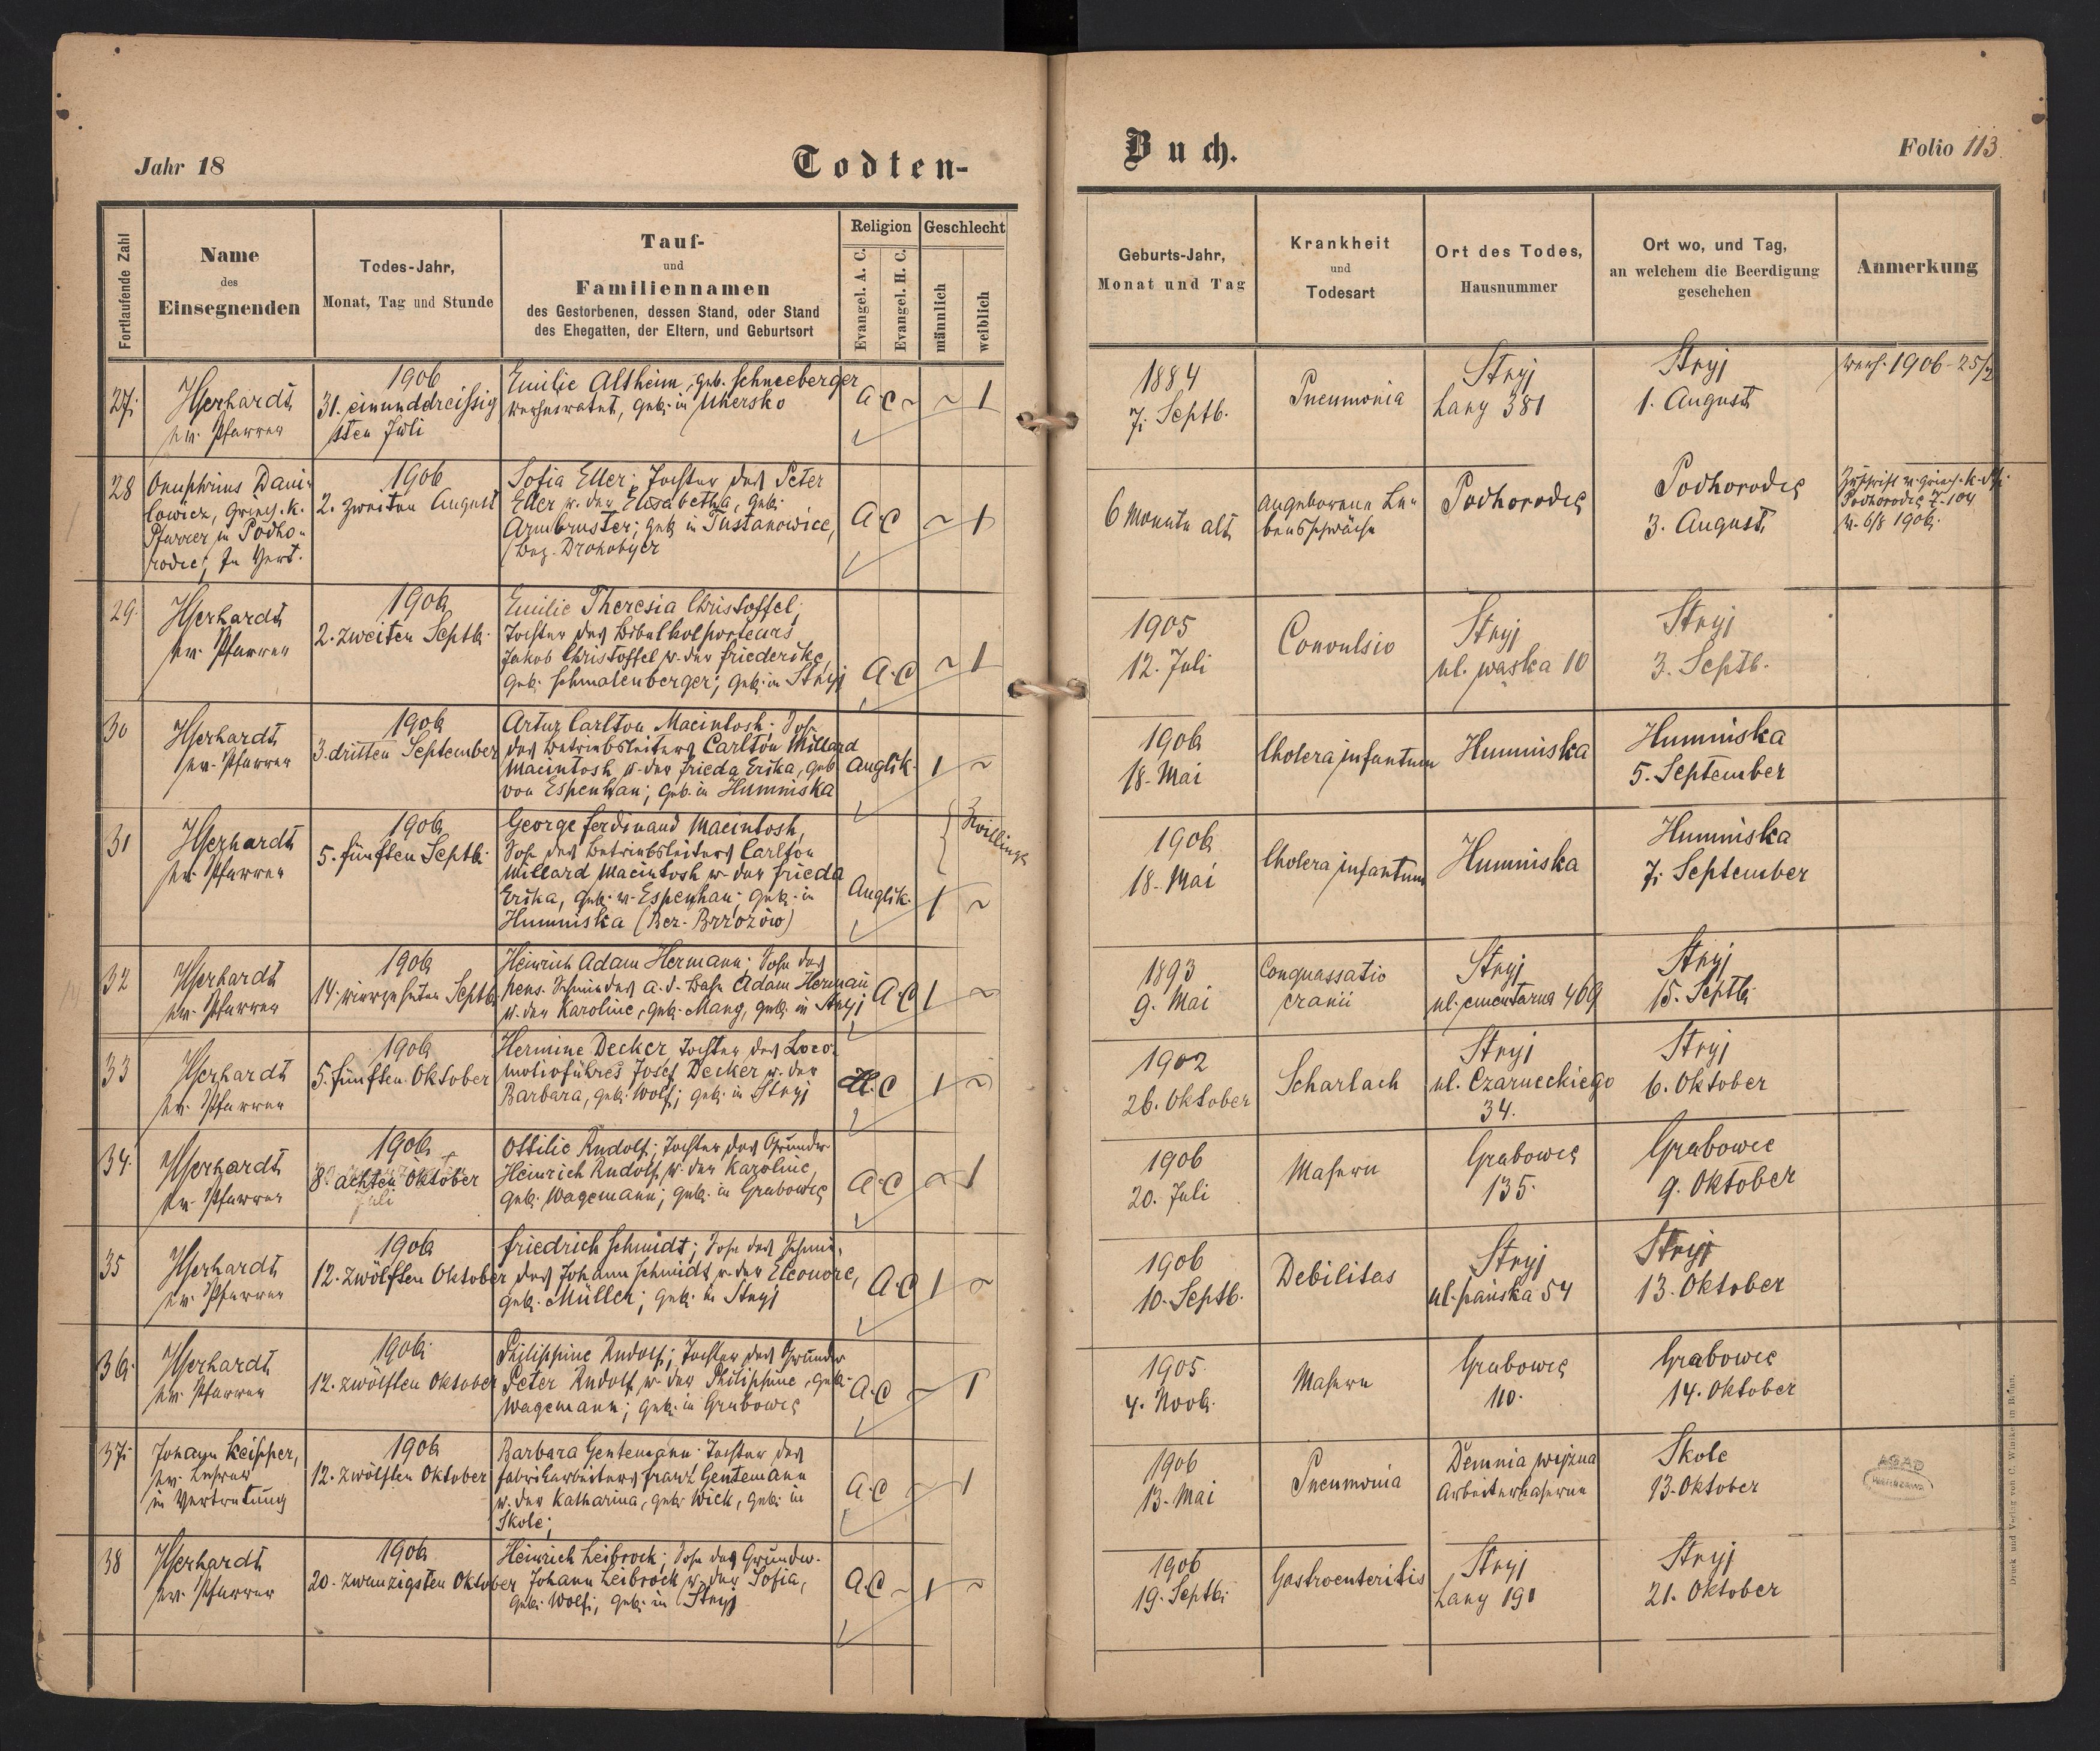 Jahr 18
Todten-
Buch.
Folio 113
Fortlaufende Zahl
Name
des
Einsegnenden
Todes-Jahr,
Monat, Tag und Stunde
Tauf-
und
Familiennamen
des Gestorbenen, dessen Stand, oder Stand
des Ehegatten, der Eltern, und Geburtsort
Religion
Evangel. A. C.
Evangel. H. C.
Geschlecht
männlich
weiblich
Geburts-Jahr,
Monat und Tag
Krankheit
und
Todesart
Ort des Todes,
Hausnummer
Ort wo, und Tag,
an welchem die Beerdigung
geschehen
Anmerkung
27.
Gerhardt
ev. Pfarrer
1906
31. einunddreissig
sten Juli
Emilie Altheim, geb. Schneeberger
verheiratet, geb. in Uhersko
A.C ~
~ 1
1884
7. Septb.
Pneumonia
Stryj
Lany 381
Stryj
1. August
verh. 1906 - 25/2
28
Onuphrius Dani-
lowicz, griech. k.
Pfarrer in Podho-
rodce, In Vert.
1906
2. zweiten August
Sofia Eller; Tochter des Peter
Eller u. der Elisabetha, geb.
Armbruster; geb. in Tustanowice,
(Bez. Drohobycz
A.C
~ 1
6 Monate alt
angeborene Le-
bensschwäche
Podhorodce
Podhorodce
3. August
Zuschrift v. griech. k. Pf.
Podhorodce Z. 104
v. 6/8 1906.
29.
Gerhardt
ev. Pfarrer
1906
2. zweiten Septb.
Emilie Theresia Christoffel;
Tochter des Bibelkolporteurs
Jakob Christoffel u. der Friederike,
geb. Schmalenberger; geb. in Stryj
A.C
~ 1
1905
12. Juli
Convulsio
Stryj
ul. wąska 10
Stryj
3. Septb.
30
Gerhardt
ev. Pfarrer
1906
3. dritten September
Artur Carlton Macintosh; Sohn
des Betriebsleiters Carlton Millard
Macintosh u. der Frieda Erika, geb
von Espenhan; geb. in Humniska
Anglik.
1 ~
1906
18. Mai
Cholera infantum
Humniska
Humniska
5. September
31
Gerhardt
ev. Pfarrer
1906
5. fünften Septb.
George Ferdinand Macintosh,
Sohn des Betriebsleiters Carlton
Millard Macintosh u. der Frieda
Erika, geb. v. Espenhan; geb. in
Humniska (Bez. Brzozów)
Anglik.
Zwillinge
1 ~
1906
18. Mai
Cholera infantum
Humniska
Humniska
7. September
32
Gerhardt
ev. Pfarrer
1906
14. vierzehnten Septb.
Heinrich Adam Hermann; Sohn des
pens. Schmiedes a. d. Bahn Adam Hermann
u. der Karoline, geb. Mang, geb. in Stryj
A.C
1 ~
1893
9. Mai
Conquassatio
cranii
Stryj
ul. cmentarna 469
Stryj
15. Septb.
33
Gerhardt
ev. Pfarrer
1906
5. fünften Oktober
Hermine Decker, Tochter des Loco-
motivführers Josef Decker u. der
Barbara, geb. Wolf; geb. in Stryj
H.C
1 ~
1902
26. Oktober
Scharlach
Stryj
ul. Czarneckiego
34.
Stryj
6. Oktober
34.
Gerhardt
ev. Pfarrer
1906
8. achten Oktober
Juli
Ottilie Rudolf; Tochter des Grundw.
Heinrich Rudolf u. der Karoline,
geb. Wagemann; geb. in Grabowce
A.C
~ 1
1906
20. Juli
Masern
Grabowce
135.
Grabowce
9. Oktober
35
Gerhardt
ev. Pfarrer
1906
12. zwölften Oktober
Friedrich Schmidt; Sohn des Schmie-
des Johann Schmidt u. der Eleonore,
geb. Müller; geb. in Stryj
A.C
1 ~
1906
10. Septb.
Debilitas
Stryj
ul. pańska 54
Stryj
13. Oktober
36.
Gerhardt
ev. Pfarrer
1906.
12. zwölften Oktober
Philippine Rudolf; Tochter des Grundw
Peter Rudolf u. der Philippine, geb.
Wagemann; geb. in Grabowce
A.C
~ 1
1905.
4. Novb.
Masern
Grabowce
110.
Grabowce
14. Oktober
37.
Johann Keipper,
ev. Lehrer
in Vertretung
1906
12. zwölften Oktober
Barbara Gentemann. Tochter des
Fabrikarbeiters Franz Gentemann
u. der Katharina, geb. Wick, geb. in
Skole;
A.C
~ 1
1906
13. Mai
Pneumonia
Demnia wyżna
Arbeiterkaserne
Skole
13. Oktober
AGAD
WARSZAWA
38
Gerhardt
ev. Pfarrer
1906
20. zwanzigsten Oktober
Heinrich Leibrock; Sohn des Grundw.
Johann Leibrock u. der Sofia,
geb. Wolf; geb. in Stryj
A.C ~
1 ~
1906
19. Septb.
Gastroenteritis
Stryj
Lany 191
Stryj
21. Oktober
Druck und Verlag von C. Winiker in Brünn.